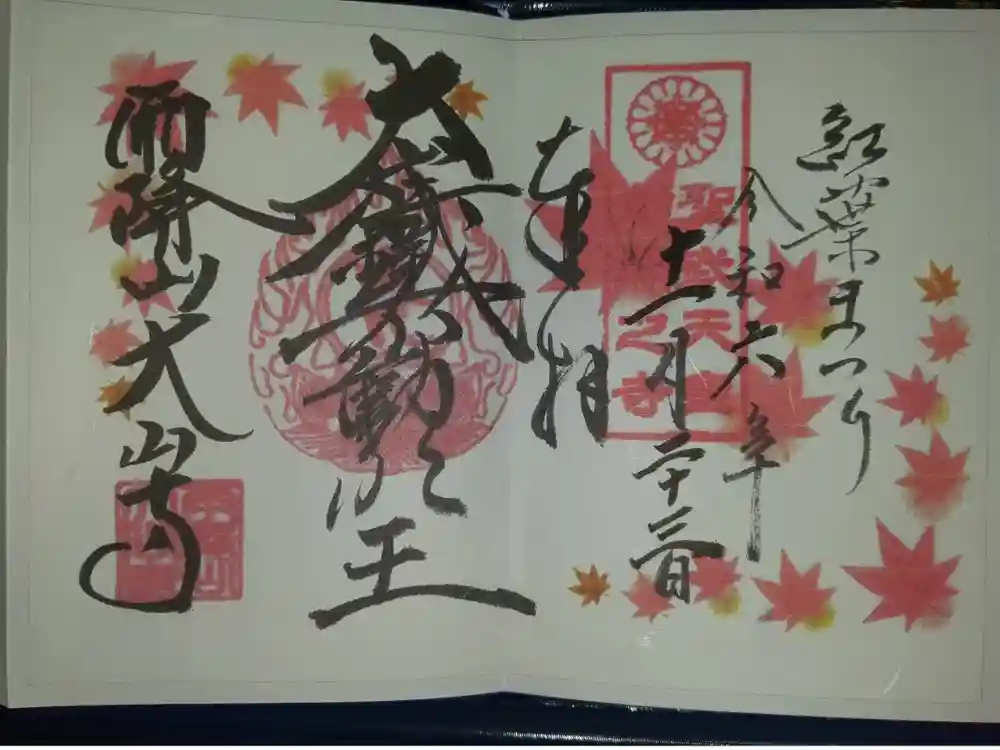 紅葉まつり
令和六年
十一月二十三日
聖武天皇
之寺
奉拝
大鐵不動明王
雨降山大山寺